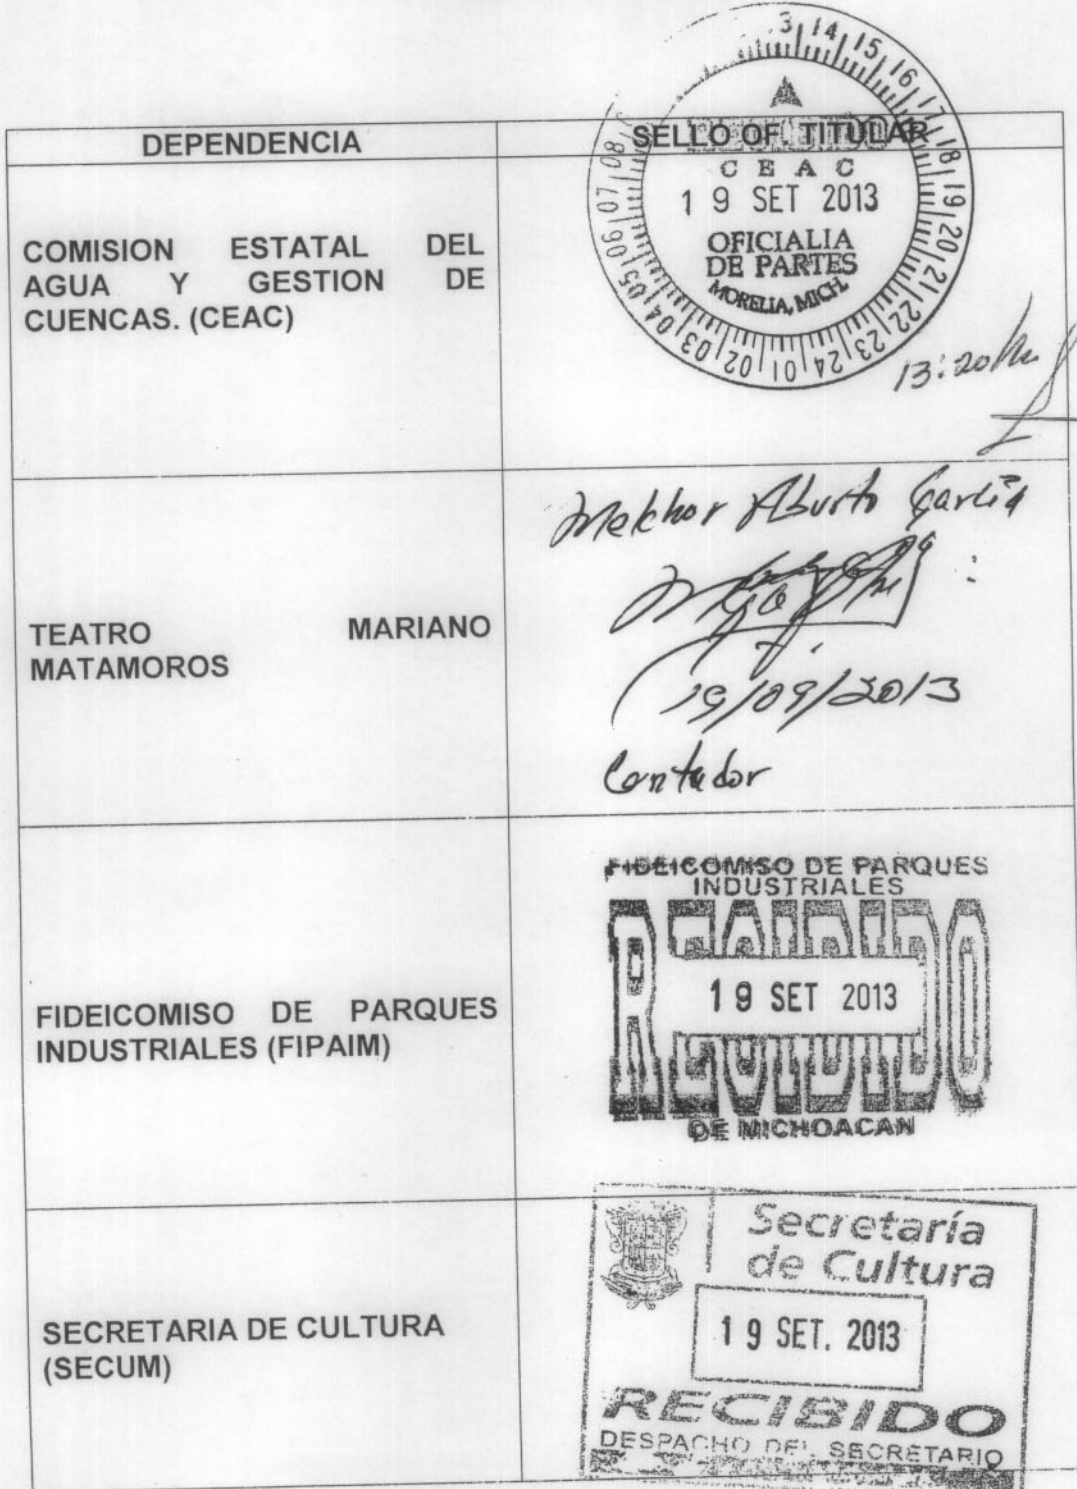 DEPENDENCIA
SELLO OF. TITULAR
COMISION ESTATAL DEL
AGUA Y GESTION DE
CUENCAS. (CEAC)
14 15 16 17 18 19 20 21 22 23 24 01 02 03 04 05 06 07 08
CEAC
19 SET 2013
OFICIALIA
DE PARTES
MORELIA, MICH.
13:20
TEATRO MARIANO
MATAMOROS
Melchor Aburto García
19/09/2013
Contador
FIDEICOMISO DE PARQUES
INDUSTRIALES (FIPAIM)
FIDEICOMISO DE PARQUES
INDUSTRIALES
RECIBIDO
19 SET 2013
DE MICHOACAN
SECRETARIA DE CULTURA
(SECUM)
Secretaría
de Cultura
19 SET. 2013
RECIBIDO
DESPACHO DEL SECRETARIO